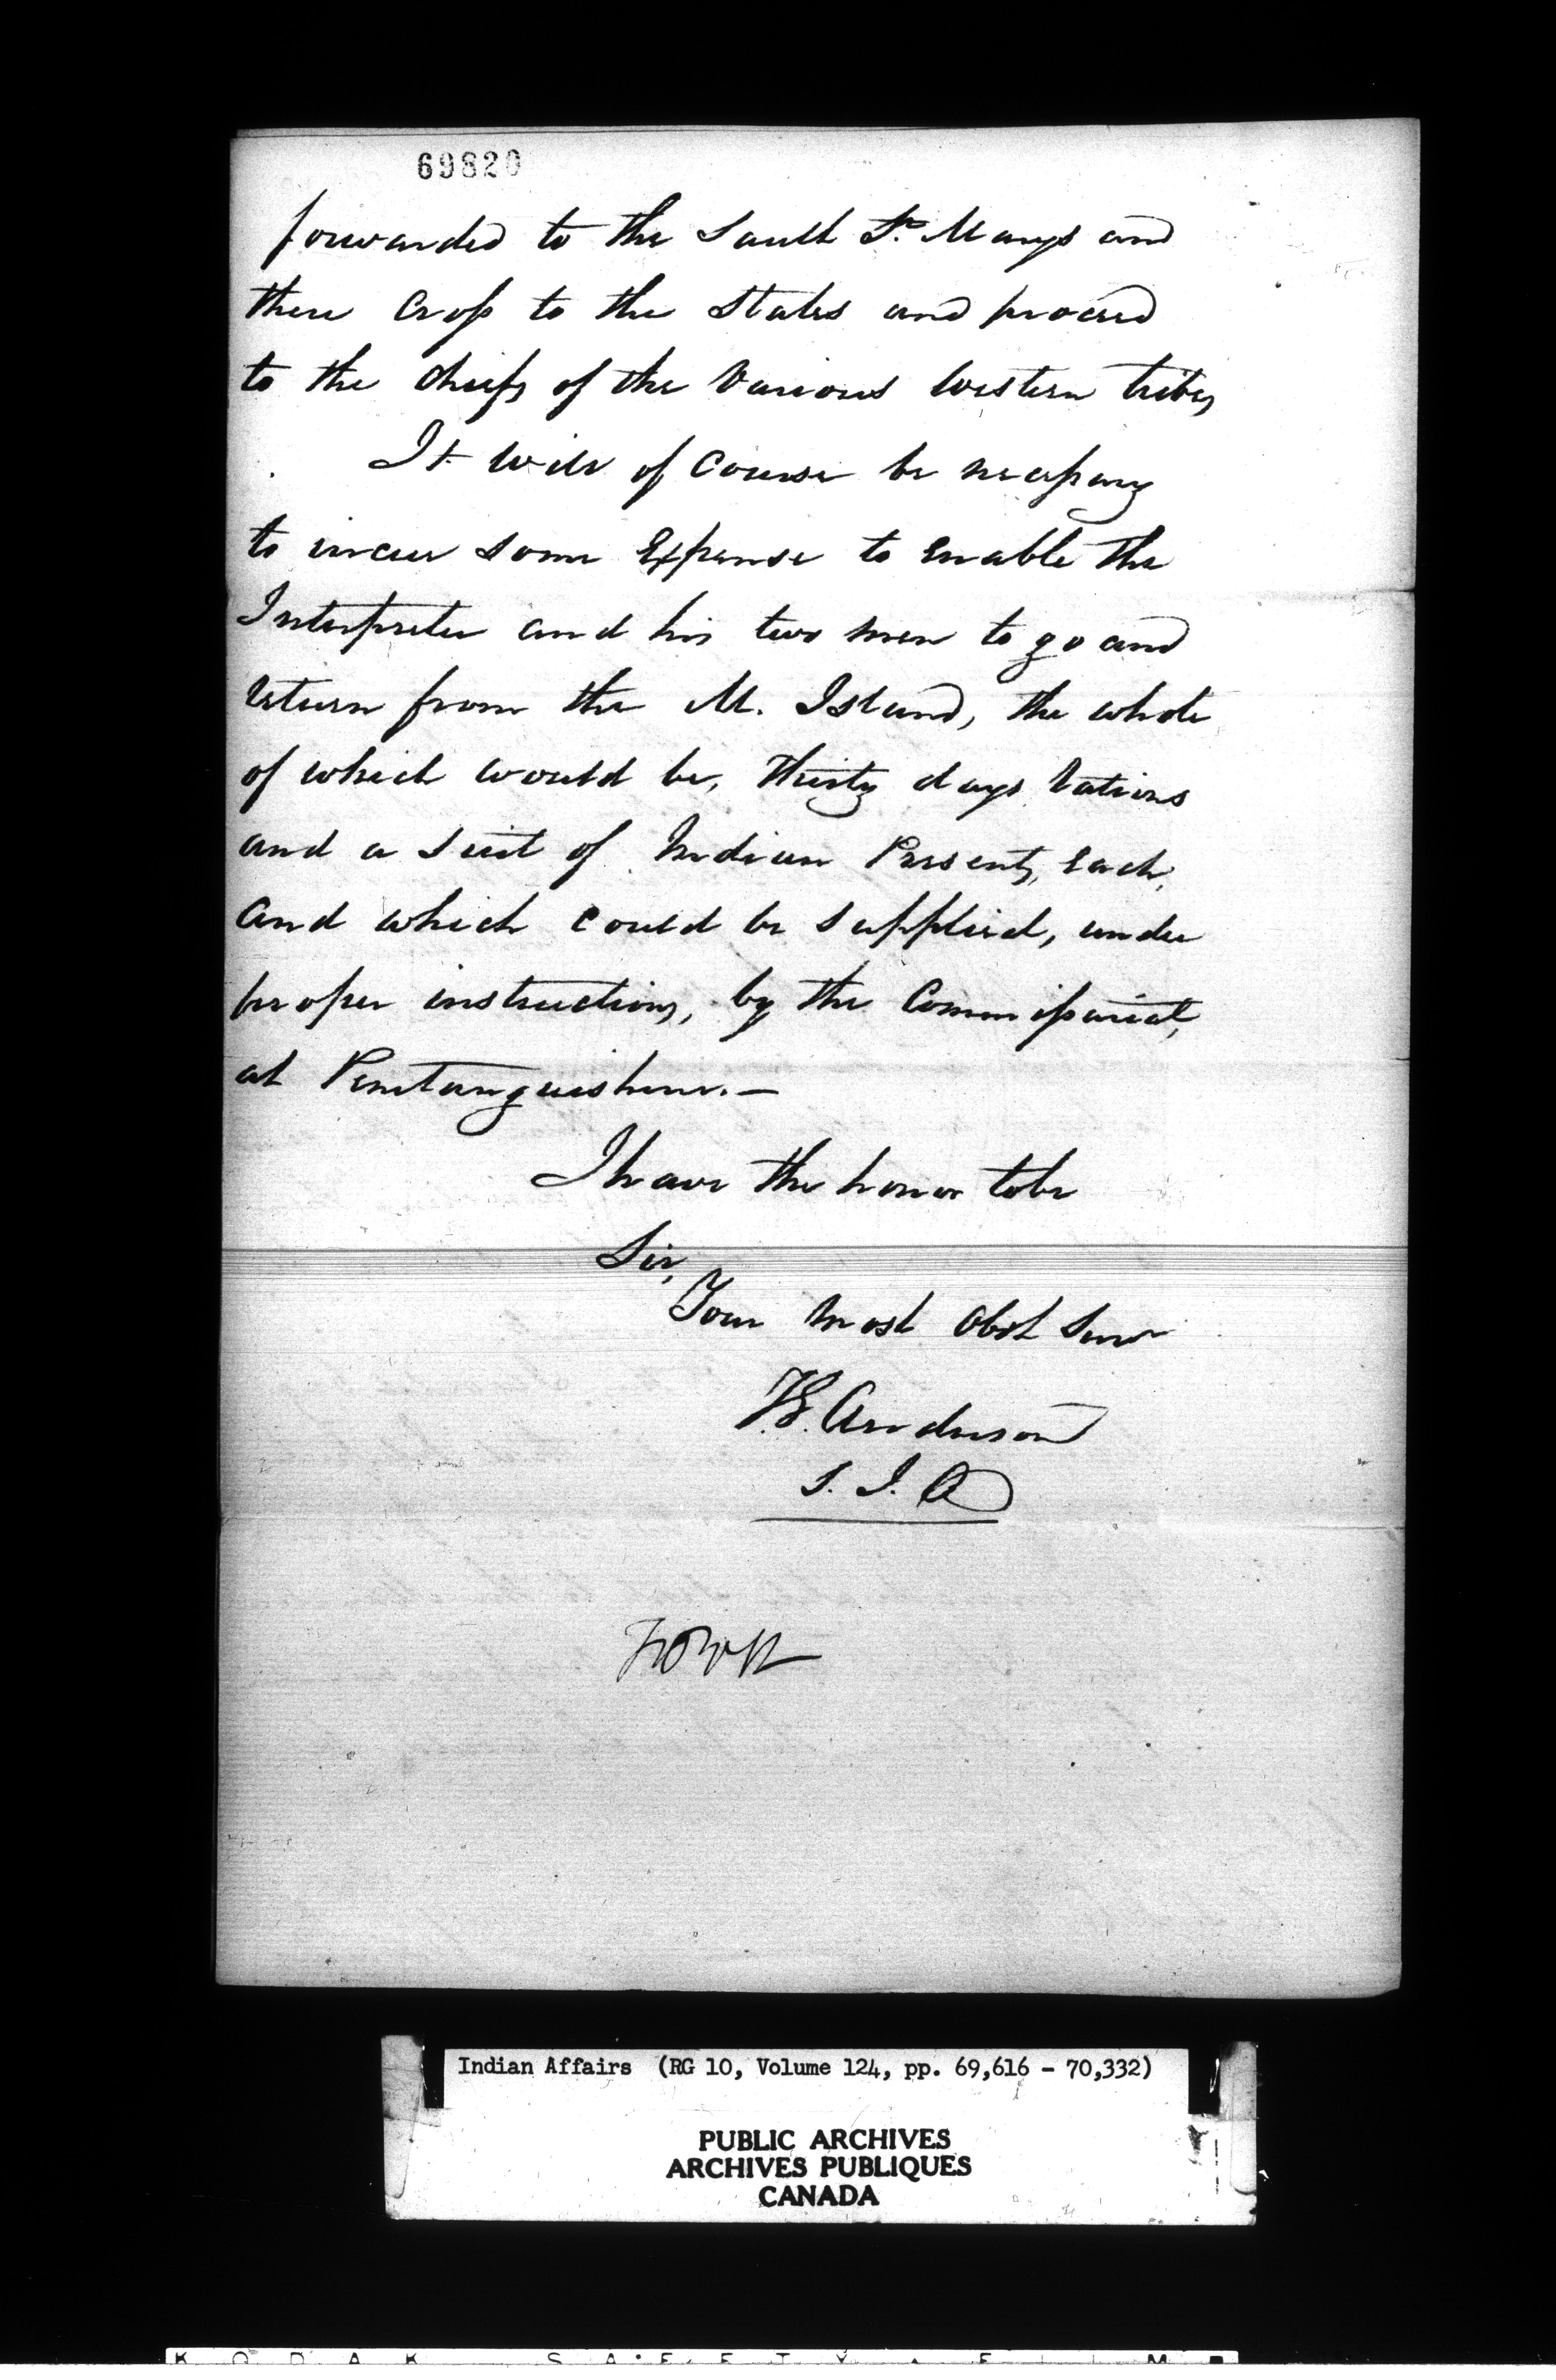 69820
forwarded to the Sault St. Marys and
there Cross to the States and proceed
to the Chiefs of the Various Western tribes
It will of Course be necessary
to incur some Expense to Enable the
Interpreter and his two men to go and
return from the M. Island, the whole
of which would be, Thirty days rations
and a suit of Indian Presents, Each,
and which could be supplied, under
proper instructions, by the Commissariat,
at Penetanguishene.—
I have the honor to be
Sir,
Your most Obdt Servt
T.G. Anderson
S. I. A
Indian Affairs (RG 10, Volume 124, pp. 69,616 - 70,332)
PUBLIC ARCHIVES
ARCHIVES PUBLIQUES
CANADA